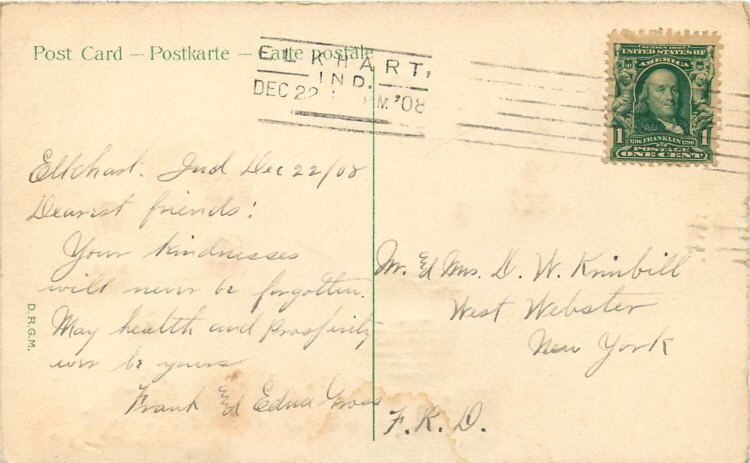 Post Card – Postkarte – Carte postale
ELKHART,
IND.
DEC 22 M. '08
SERIES 1902
UNITED STATES OF
AMERICA
1 FRANKLIN 1
POSTAGE
ONE CENT
Elkhart. Ind Dec 22/08
Dearest friends!
Your kindnesses
will never be forgotten.
May health and prosperity
ever be yours
Frank and Edna Gross
D.R.G.M.
Mr. & Mrs. D. W.
West Webster
New York
F. R. D.